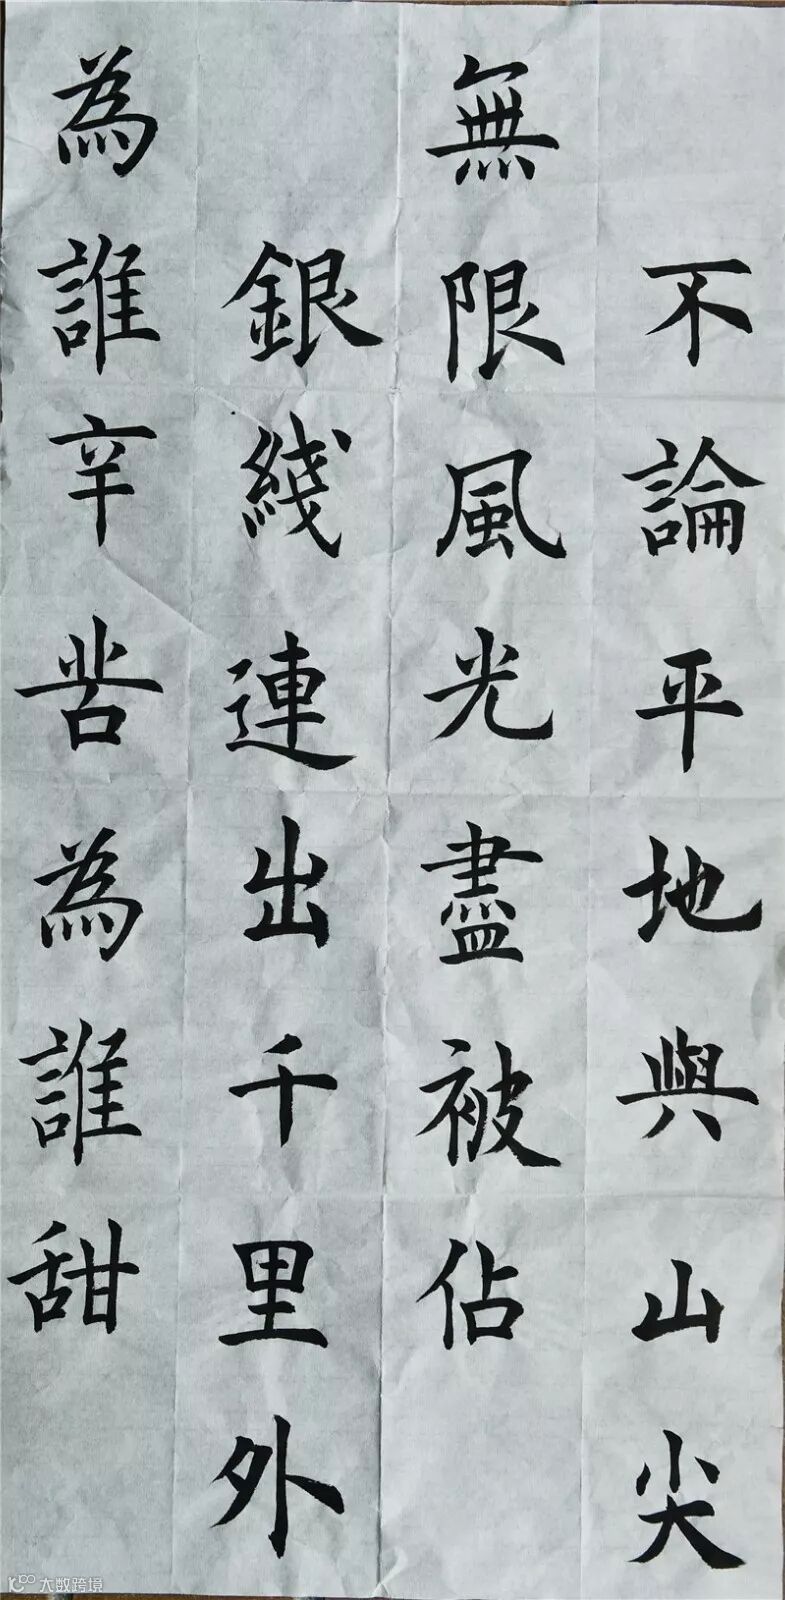 不論平地與山尖
無限風光盡被佔
銀綫連出千里外
為誰辛苦為誰甜
大数跨境